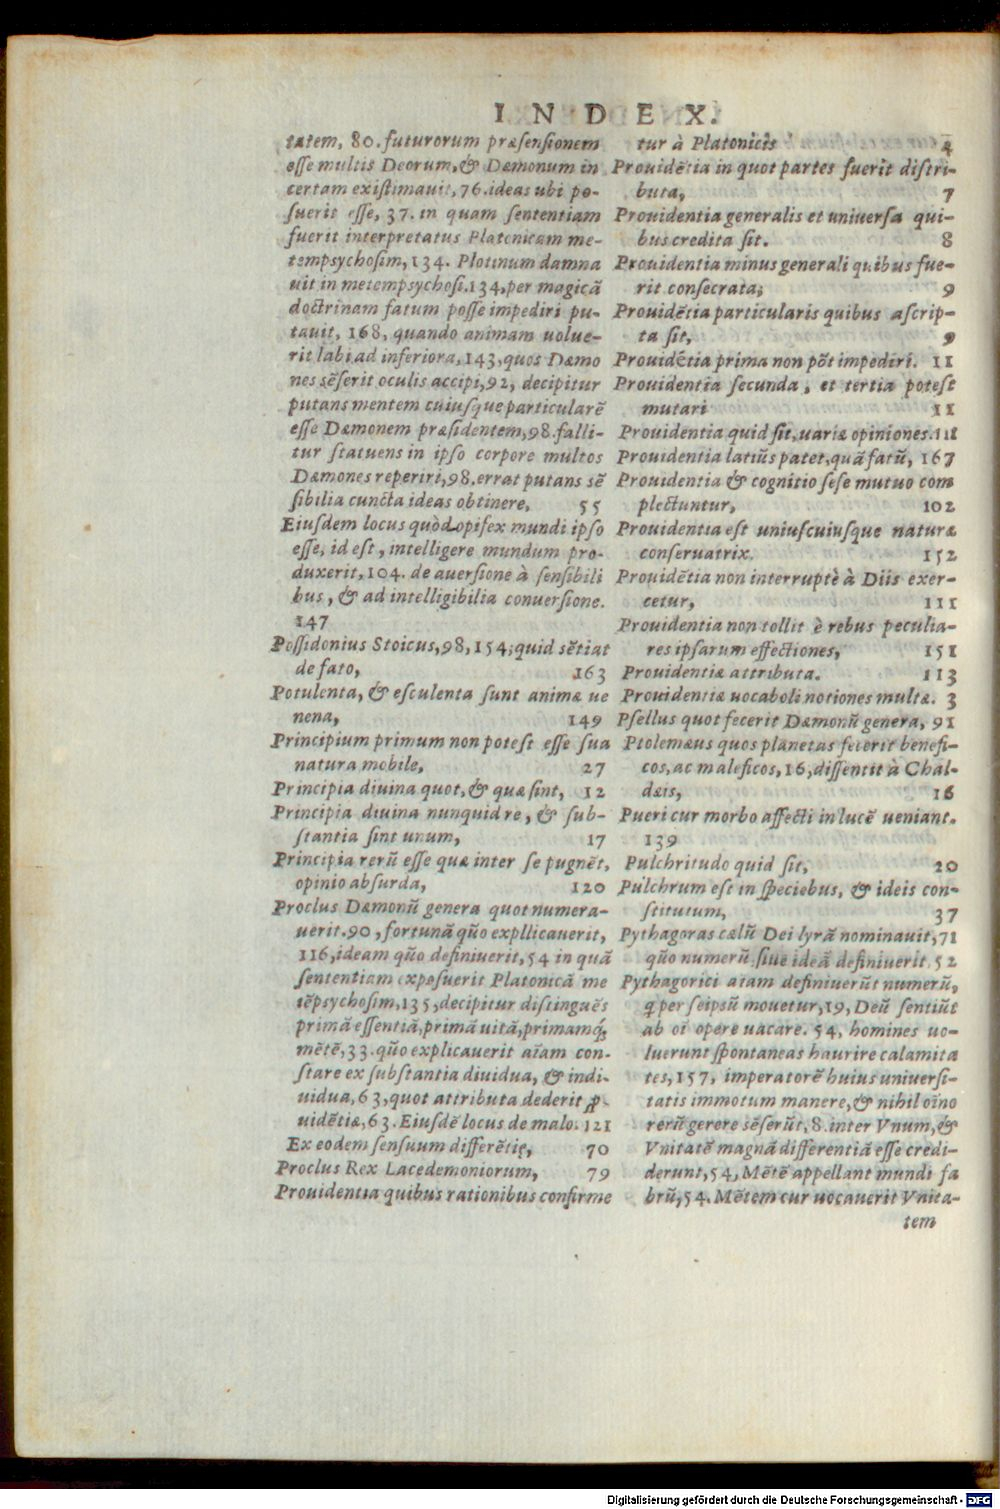 INDEX.
tatem, 80. futurorum præsensionem
esse multis Deorum, & Dæmonum in
certam existimauit, 76. ideas ubi po-
suerit esse, 37. in quam sententiam
fuerit interpretatus Platonicam me-
tempsychosim, 134. Plotinum damna
uit in metempsychosi. 134, per magicā
doctrinam fatum posse impediri pu-
tauit, 168, quando animam uolue-
rit labi ad inferiora, 143, quos Dæmo
nes sēserit oculis accipi, 92, decipitur
putans mentem cuiusque particularē
esse Dæmonem præsidentem, 98. falli-
tur statuens in ipso corpore multos
Dæmones reperiri, 98. errat putans sē
sibilia cuncta ideas obtinere, 55
Eiusdem locus quòd opifex mundi ipso
esse, id est, intelligere mundum pro-
duxerit, 104. de auersione à sensibili
bus, & ad intelligibilia conuersione.
147
Possidonius Stoicus, 98, 154; quid sētiat
de fato, 163
Potulenta, & esculenta sunt animæ ue
nena, 149
Principium primum non potest esse sua
natura mobile, 27
Principia diuina quot, & quæ sint, 12
Principia diuina nunquid re, & sub-
stantia sint unum, 17
Principia rerū esse quæ inter se pugnēt,
opinio absurda, 120
Proclus Dæmonū genera quot numera-
uerit. 90, fortunā quō expllicauerit,
116, ideam quō definiuerit, 54 in quā
sententiam exposuerit Platonicā me
tēpsychosim, 135, decipitur distinguēs
primā essentiā, primā uitā, primamq́;
mētē, 33. quō explicauerit aīam con-
stare ex substantia diuidua, & indi-
uidua, 63, quot attributa dederit ꝓ-
uidētiæ, 63. Eiusdē locus de malo. 121
Ex eodem sensuum differētię, 70
Proclus Rex Lacedemoniorum, 79
Prouidentia quibus rationibus confirme
tur à Platonicis 4
Prouidētia in quot partes fuerit distri-
buta, 7
Prouidentia generalis et uniuersa qui-
bus credita sit. 8
Prouidentia minus generali quibus fue-
rit consecrata; 9
Prouidētia particularis quibus ascrip-
ta sit, 9
Prouidētia prima non pōt impediri. 11
Prouidentia secunda, et tertia potest
mutari 11
Prouidentia quid sit, uariæ opiniones. 111
Prouidentia latiùs patet, quā fatū, 167
Prouidentia & cognitio sese mutuo com
plectuntur, 102
Prouidentia est uniuscuiusque naturæ
conseruatrix. 152
Prouidētia non interruptè à Diis exer-
cetur, 111
Prouidentia non tollit è rebus peculia-
res ipsarum effectiones, 151
Prouidentiæ attributa. 113
Prouidentiæ uocaboli notiones multæ. 3
Psellus quot fecerit Dæmonū genera, 91
Ptolemæus quos planetas fecerit benefi-
cos, ac maleficos, 16, dissentit à Chal-
dæis, 16
Pueri cur morbo affecti in lucē ueniant.
139
Pulchritudo quid sit, 20
Pulchrum est in speciebus, & ideis con-
stitutum, 37
Pythagoras cælū Dei lyrā nominauit, 71
quō numerū siue ideā definiuerit 52
Pythagorici aīam definiuerūt numerū,
q̨ per seipsū mouetur, 19, Deū sentiūt
ab oī opere uacare. 54, homines uo-
luerunt spontaneas haurire calamita
tes, 157, imperatorē huius uniuersi-
tatis immotum manere, & nihil oīno
rerū gerere sēserūt, 8. inter Vnum, &
Vnitatē magnā differentiā esse credi-
derunt, 54, Mētē appellant mundi fa
brū, 54. Mētem cur uocauerit Vnita-
tem
Digitalisierung gefördert durch die Deutsche Forschungsgemeinschaft - DFG